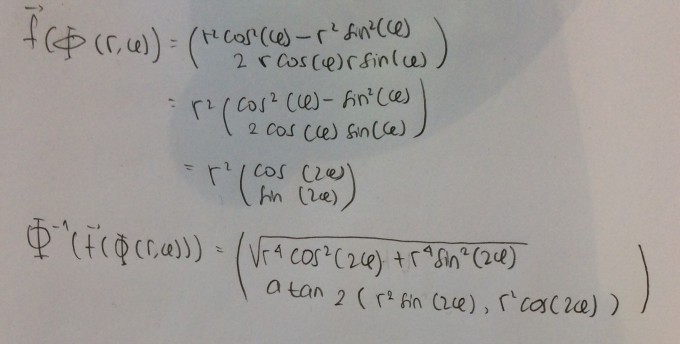 f⃗(Φ(r,φ)) = (r² cos²(φ) − r² sin²(φ)
2 r cos(φ) r sin(φ))
= r² (cos²(φ) − sin²(φ)
2 cos(φ) sin(φ))
= r² (cos (2φ)
sin (2φ))
Φ⁻¹(f⃗(Φ(r,φ))) = (√(r⁴ cos²(2φ) + r⁴ sin²(2φ))
atan 2 (r² sin (2φ), r² cos(2φ)))